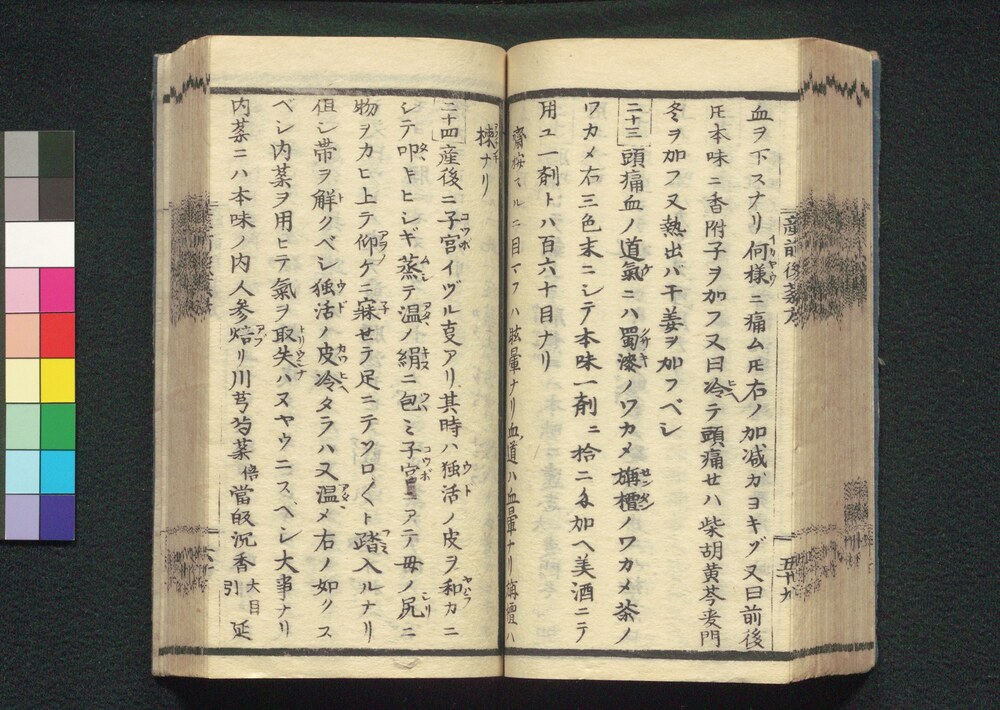 血ヲ下スナリ何様ニ痛ム𪜈右ノ加减ガヨキゾ又曰前後
𪜈本味ニ香附子ヲ加フ又曰冷テ頭痛セハ柴胡黄芩麦門
冬ヲ加フ又熱出バ干姜ヲ加フベシ
二十三頭痛血ノ道氣ニハ蜀漆ノワカメ旃檀ノワカメ茶ノ
ワカメ右三色末ニシテ本味一剤ニ拾二匁加ヘ美酒ニテ
用ユ一剤トハ百六十目ナリ
齋按スルニ目マフハ眩暈ナリ血道ハ血暈ナリ旃檀ハ
楝ナリ
二十四産後ニ子宮イヅル㕝アリ其時ハ独活ノ皮ヲ和カニ
シテ叩トヒシギ蒸テ温ノ絹ニ包ミ子宮ニアテ母ノ尻ニ
物ヲカヒ上テ仰ケニ寐せテ足ニテソロ〱ト踏入ルナリ
但シ帯ヲ解クベシ独活ノ皮冷タラハ又温メ右ノ如クス
ベシ内薬ヲ用ヒテ氣ヲ取失ハヌヤウニスヘシ大事ナリ
内薬ニハ本味ノ内人参焙リ川芎芍薬倍當皈沉香引大目延
産前後薬方
五十九